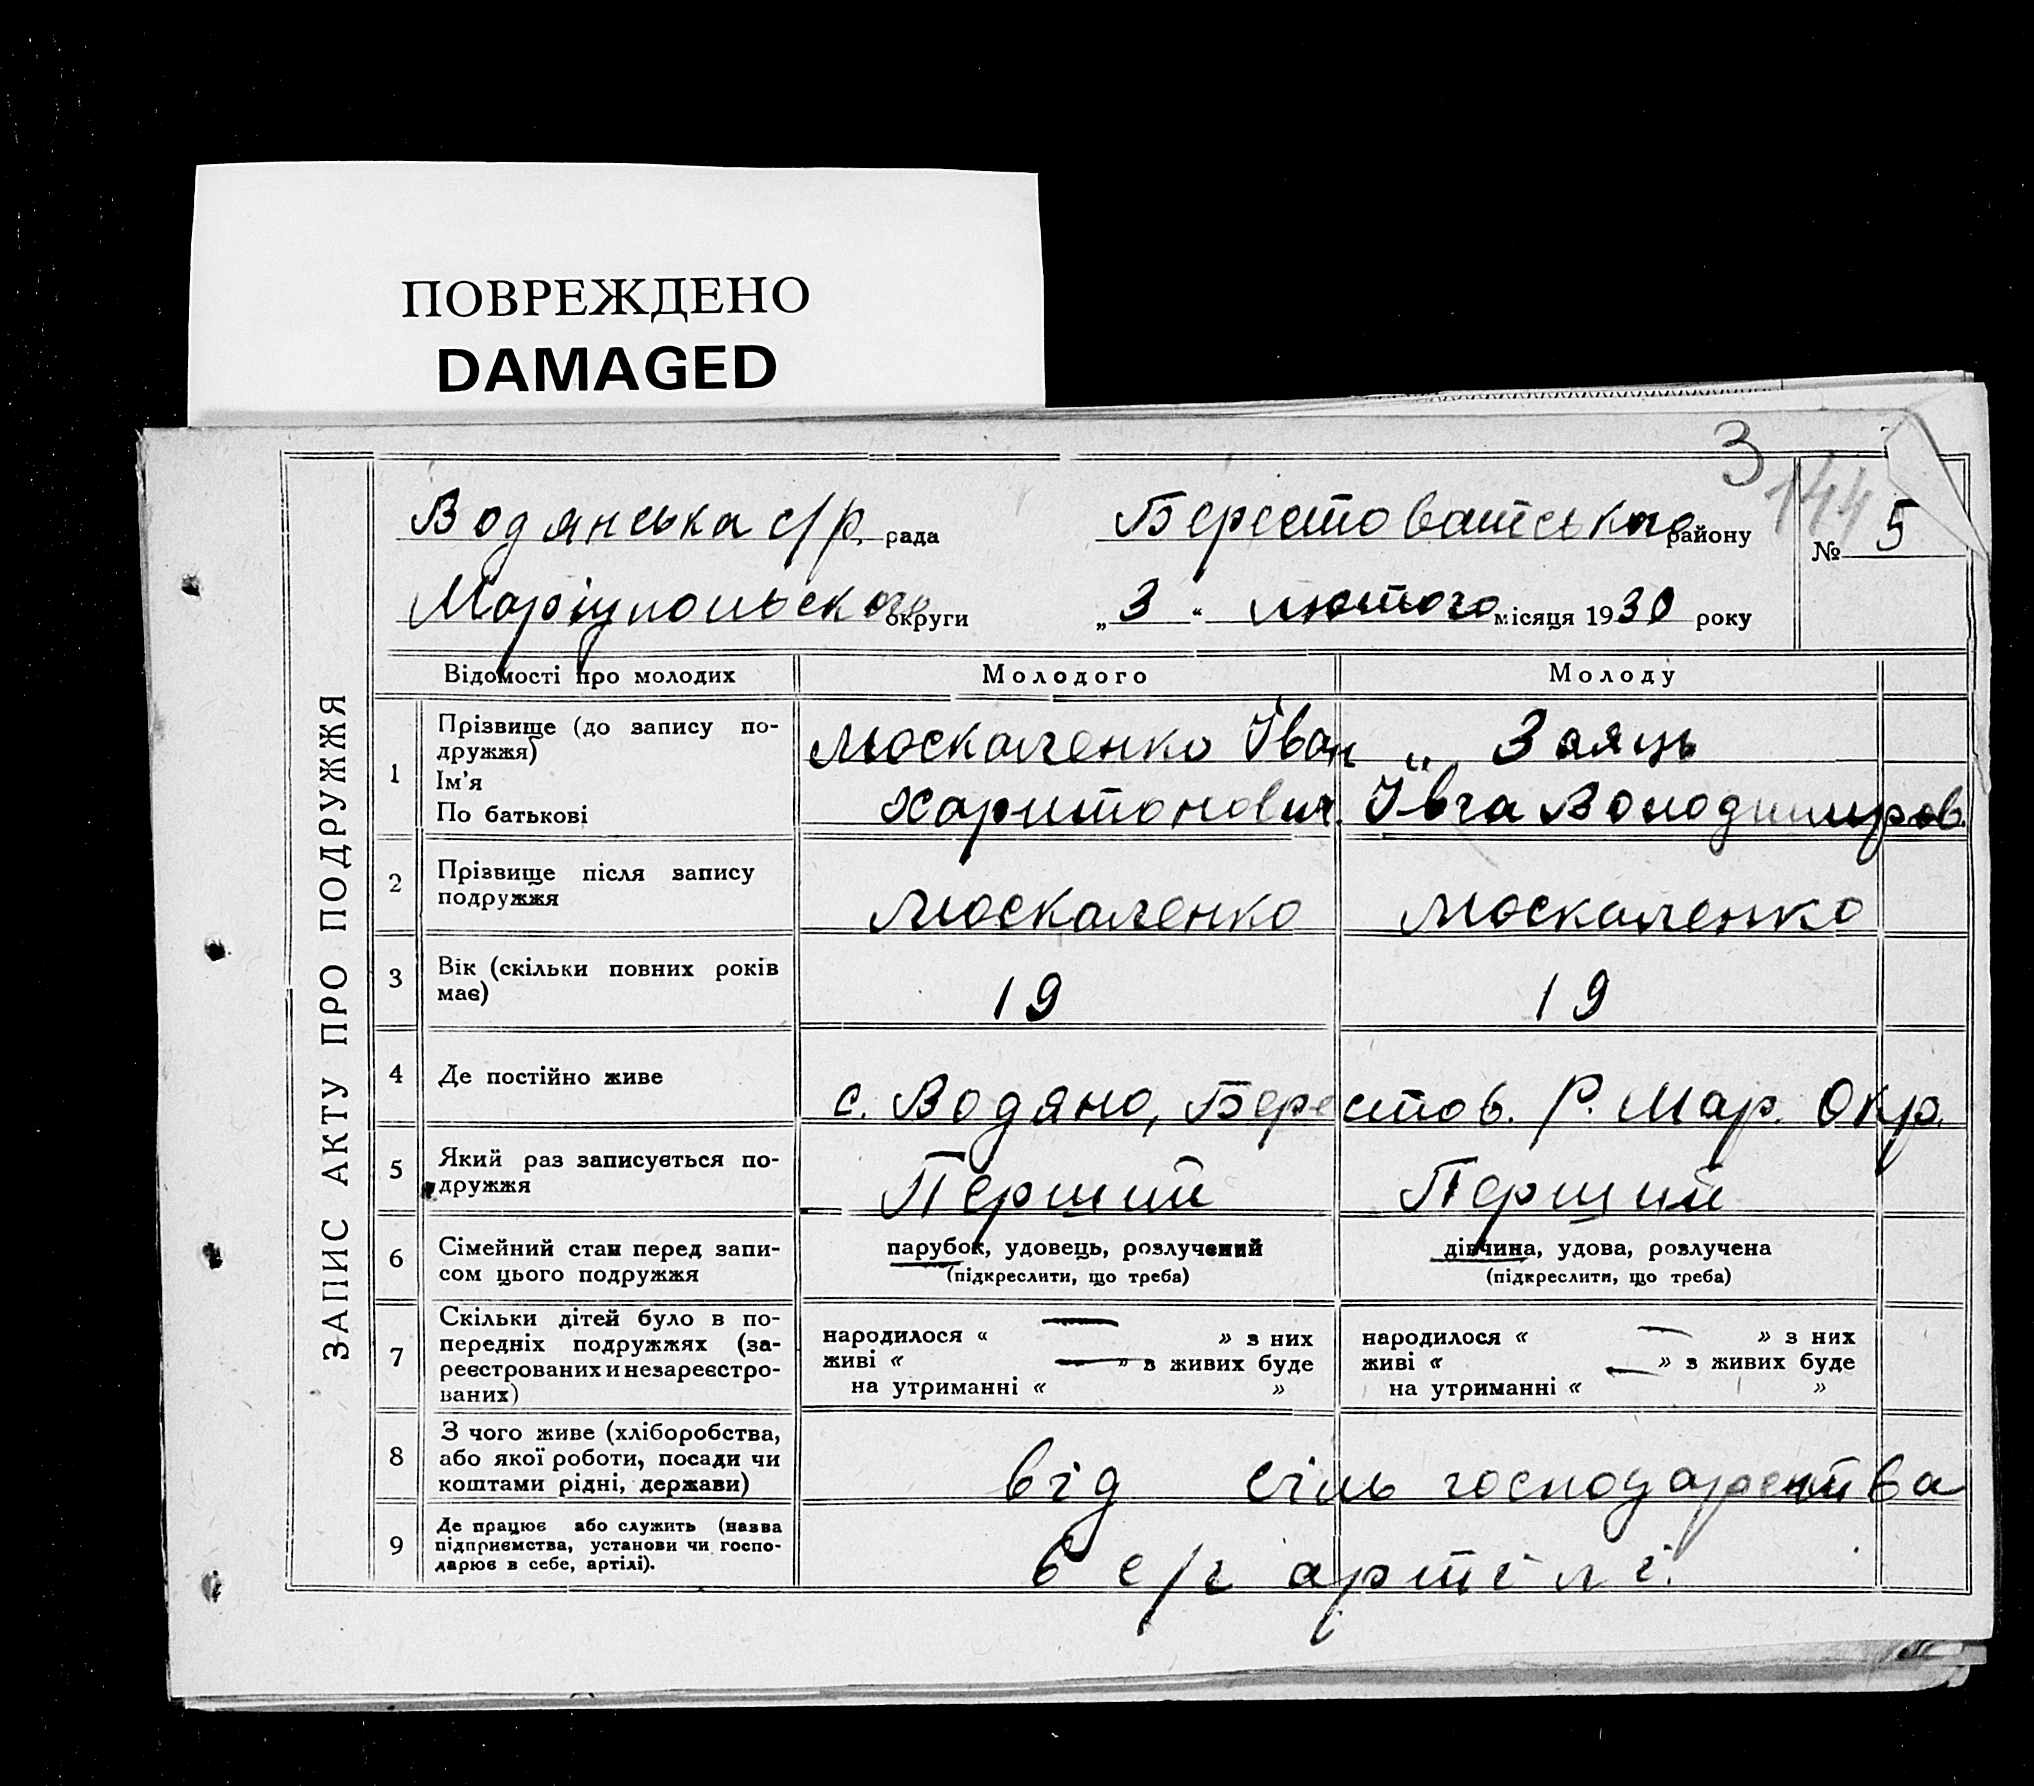 ПОВРЕЖДЕНО
DAMAGED
3
144
ЗАПИС АКТУ ПРО ПОДРУЖЖЯ
Водянська с/р. рада Берестоватського району № 5
Маріупольского округи „ 3 “ лютого місяця 1930 року
Відомості про молодих Молодого Молоду
1 Прізвище (до запису по-
дружжя)
Ім'я
По батькові
Москаленко Іван
Харитонович.
„ Заяць
Івга Володимиров.
2 Прізвище після запису
подружжя
Москаленко Москаленко
3 Вік (скільки повних років
має)
19 19
4 Де постійно живе с. Водяно, Берестов. Р. Мар. Окр.
5 Який раз записується по-
дружжя
Перший Перший
6 Сімейний стан перед запи-
сом цього подружжя
парубок, удовець, розлучений
(підкреслити, що треба)
дівчина, удова, розлучена
(підкреслити, що треба)
7 Скільки дітей було в по-
передніх подружжях (за-
реєстрованих и незареєстро-
ваних)
народилося « — » з них
живі « — » з живих буде
на утриманні « »
народилося « — » з них
живі « — » з живих буде
на утриманні « »
8 З чого живе (хліборобства,
або якої роботи, посади чи
коштами рідні, держави)
від сіль господарства
9 Де працює або служить (назва
підприємства, установи чи госпо-
дарює в себе, артілі).
в с/г артілі.